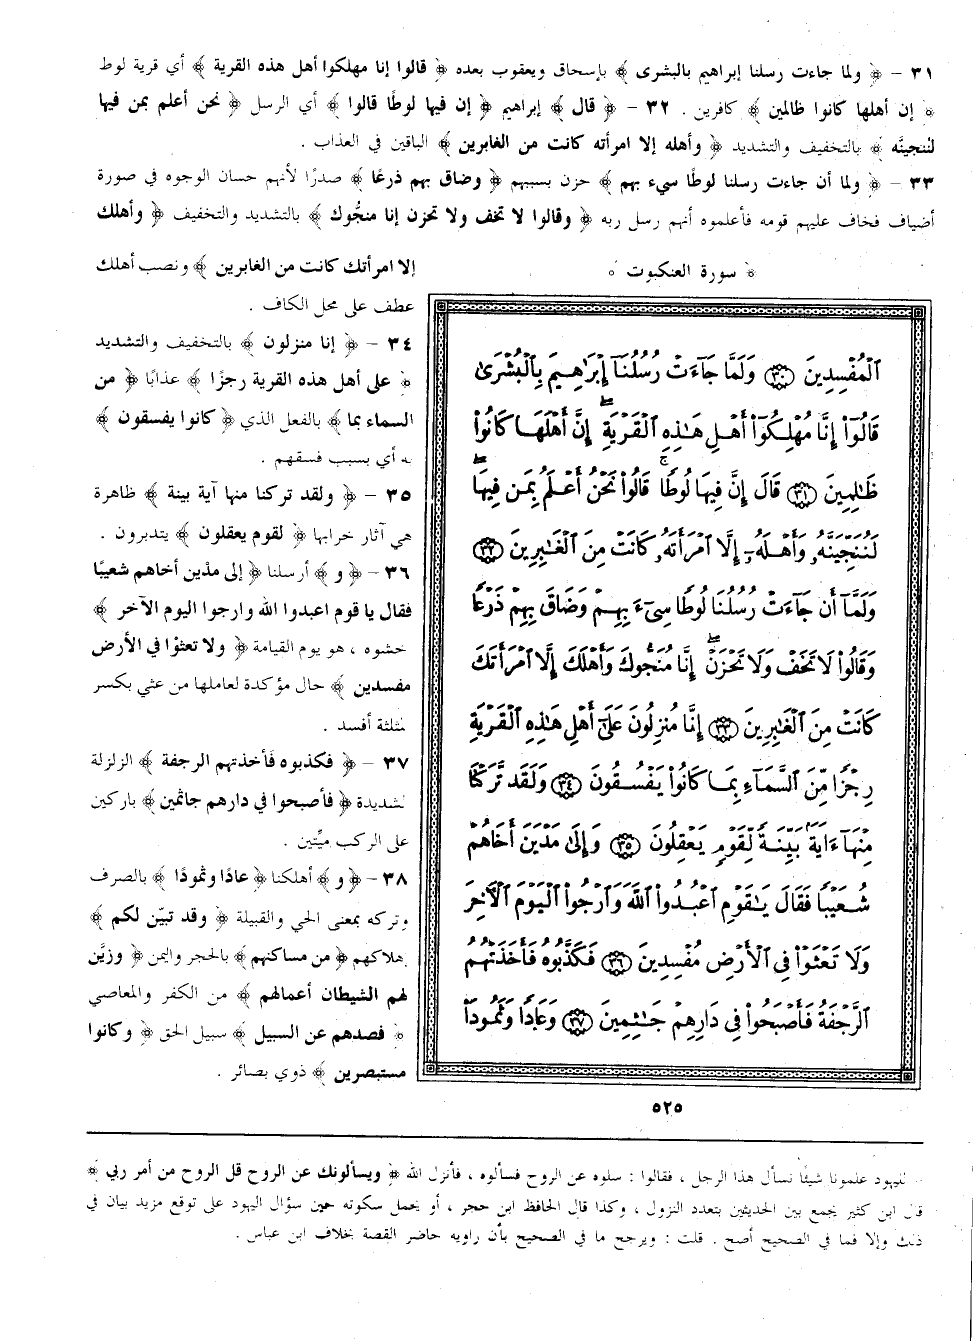 ٣١ - ﴿ ولما جاءت رسلنا إبراهيم بالبشرى ﴾ بإسحاق ويعقوب بعده ﴿ قالوا إنا مهلكوا أهل هذه القرية ﴾ أي قرية لوط
﴿ إن أهلها كانوا ظالمين ﴾ كافرين . ٣٢ - ﴿ قال ﴾ إبراهيم ﴿ إن فيها لوطًا قالوا ﴾ أي الرسل ﴿ نحن أعلم بمن فيها
لننجينَّه ﴾ بالتخفيف والتشديد ﴿ وأهله إلا امرأته كانت من الغابرين ﴾ الباقين في العذاب .
٣٣ - ﴿ ولما أن جاءت رسلنا لوطًا سيء بهم ﴾ حزن بسببهم ﴿ وضاق بهم ذرعًا ﴾ صدرًا لأنهم حسان الوجوه في صورة
أضياف فخاف عليهم قومه فأعلموه أنهم رسل ربه ﴿ وقالوا لا تخف ولا تحزن إنا منجُّوك ﴾ بالتشديد والتخفيف ﴿ وأهلك
إلا امرأتك كانت من الغابرين ﴾ ونصب أهلك
عطف على محل الكاف .
٣٤ - ﴿ إنا منزلون ﴾ بالتخفيف والتشديد
﴿ على أهل هذه القرية رجزًا ﴾ عذابًا ﴿ من
السماء بما ﴾ بالفعل الذي ﴿ كانوا يفسقون ﴾
به أي بسبب فسقهم .
٣٥ - ﴿ ولقد تركنا منها آية بينة ﴾ ظاهرة
هي آثار خرابها ﴿ لقوم يعقلون ﴾ يتدبرون .
٣٦ - ﴿ و ﴾ أرسلنا ﴿ إلى مدْين أخاهم شعيبًا
فقال يا قوم اعبدوا الله وارجوا اليوم الآخر ﴾
خشوه ، هو يوم القيامة ﴿ ولا تعثوْا في الأرض
مفسدين ﴾ حال مؤكدة لعاملها من عثي بكسر
لمثلثة أفسد .
٣٧ - ﴿ فكذبوه فأخذتهم الرجفة ﴾ الزلزلة
لشديدة ﴿ فأصبحوا في دارهم جاثمين ﴾ باركين
على الركب ميِّتين .
٣٨ - ﴿ و ﴾ أهلكنا ﴿ عادًا وثمودًا ﴾ بالصرف
وتركه بمعنى الحي والقبيلة ﴿ وقد تبيّن لكم ﴾
إهلاكهم ﴿ من مساكنهم ﴾ بالحجر واليمن ﴿ وزيَّن
لهم الشيطان أعمالهم ﴾ من الكفر والمعاصي
﴿ فصدهم عن السبيل ﴾ سبيل الحق ﴿ وكانوا
مستبصرين ﴾ ذوي بصائر .
﴿ سورة العنكبوت ﴾
ٱلْمُفْسِدِينَ ٣٠ وَلَمَّا جَآءَتْ رُسُلُنَآ إِبْرَٰهِيمَ بِٱلْبُشْرَىٰ
قَالُوٓا۟ إِنَّا مُهْلِكُوٓا۟ أَهْلِ هَٰذِهِ ٱلْقَرْيَةِ إِنَّ أَهْلَهَا كَانُوا۟
ظَٰلِمِينَ ٣١ قَالَ إِنَّ فِيهَا لُوطًا قَالُوا۟ نَحْنُ أَعْلَمُ بِمَن فِيهَا
لَنُنَجِّيَنَّهُۥ وَأَهْلَهُۥٓ إِلَّا ٱمْرَأَتَهُۥ كَانَتْ مِنَ ٱلْغَٰبِرِينَ ٣٢
وَلَمَّآ أَن جَآءَتْ رُسُلُنَا لُوطًا سِىٓءَ بِهِمْ وَضَاقَ بِهِمْ ذَرْعًا
وَقَالُوا۟ لَا تَخَفْ وَلَا تَحْزَنْ إِنَّا مُنَجُّوكَ وَأَهْلَكَ إِلَّا ٱمْرَأَتَكَ
كَانَتْ مِنَ ٱلْغَٰبِرِينَ ٣٣ إِنَّا مُنزِلُونَ عَلَىٰٓ أَهْلِ هَٰذِهِ ٱلْقَرْيَةِ
رِجْزًا مِّنَ ٱلسَّمَآءِ بِمَا كَانُوا۟ يَفْسُقُونَ ٣٤ وَلَقَد تَّرَكْنَا
مِنْهَآ ءَايَةًۢ بَيِّنَةً لِّقَوْمٍ يَعْقِلُونَ ٣٥ وَإِلَىٰ مَدْيَنَ أَخَاهُمْ
شُعَيْبًا فَقَالَ يَٰقَوْمِ ٱعْبُدُوا۟ ٱللَّهَ وَٱرْجُوا۟ ٱلْيَوْمَ ٱلْءَاخِرَ
وَلَا تَعْثَوْا۟ فِى ٱلْأَرْضِ مُفْسِدِينَ ٣٦ فَكَذَّبُوهُ فَأَخَذَتْهُمُ
ٱلرَّجْفَةُ فَأَصْبَحُوا۟ فِى دَارِهِمْ جَٰثِمِينَ ٣٧ وَعَادًا وَثَمُودَا۟
٥٢٥
لليهود علمونا شيئًا نسأل هذا الرجل ، فقالوا : سلوه عن الروح فسألوه ، فأنزل الله ﴿ ويسألونك عن الروح قل الروح من أمر ربي ﴾
قال ابن كثير يجمع بين الحديثين بتعدد النزول ، وكذا قال الحافظ ابن حجر ، أو يحمل سكوته حين سؤال اليهود على توقع مزيد بيان في
ذلك وإلا فما في الصحيح أصح . قلت : ويرجح ما في الصحيح بأن راويه حاضر القصة بخلاف ابن عباس .